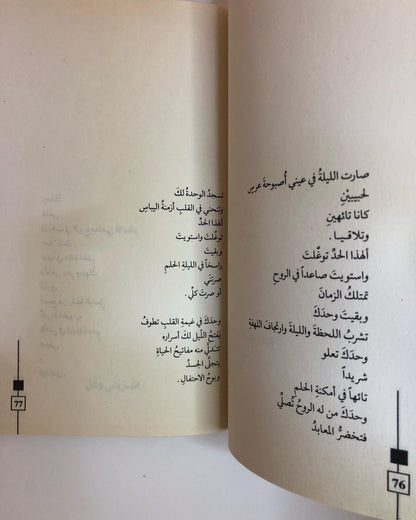 صارت الليلةُ في عيني أُصبوحةَ عرسٍ
لحبيبَيْنِ
كانا تائهينِ
وتلاقيـا .
ألهذا الحدِّ توغَّلتَ
واستويتَ صاعداً في الروحِ
تمتلكُ الزمانَ
وبقيتَ وحدَكَ
تشربُ اللحظةَ والليلةَ وارتجافَ اللهفةِ
وحدَكَ تعلو
شريداً
تائهاً في أمكنةِ الحلمِ
وحدَكَ من له الروحُ تُصلّي
فتخضرُّ المعابدُ
76
تسجدُ الوحدةُ لكَ
وتنحني في القلبِ أزمنةُ اليباسِ
ألهذا الحدِّ
توغَّلتَ واستويتَ
وبقيتَ
راسخاً في الليلةِ الحلمِ
صرتَني
أو صرتَ كلّي .
وحدَكَ في غيمةِ القلبِ تطوفُ
يفتحُ الليل لكَ أسرارَه
تتدلّى منه مفاتيحُ الحياةِ
يتجلّى الجسدُ
وبوحُ الاحتفالِ .
77